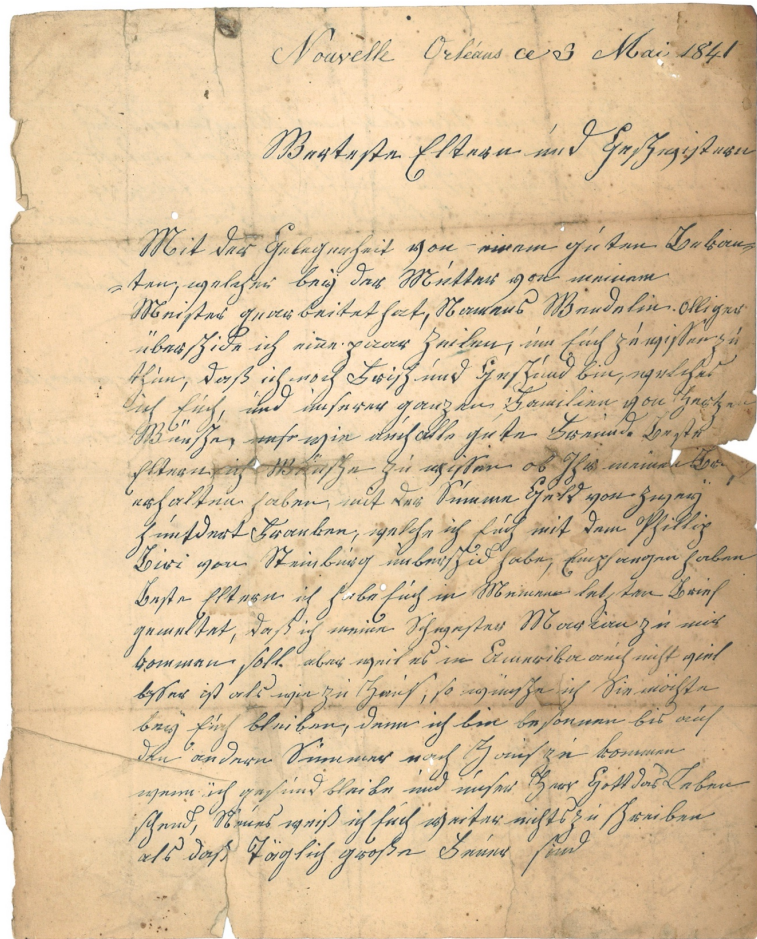 Nouvelle Orléans ce 3 Mai 1841
Werteste Eltern und Geschwistern
Mit der Gelegenheit von einem guten Bekan=
=ten, welcher bey der Mutter von meinem
Meister gearbeitet hat, Namens Wendelin Olliger
überschide ich eine paar Zeilen, um Euch zu wissen zu
thun, daß ich noch Frisch und Geschund bin, welches
ich Euch, und unserer ganzen Familien von Hertzen
Wünsche, wie auch alle gute Freunde Beste
Eltern ich Wünsche zu wissen ob Ihr meinen
erhalten haben, mit der Summe Geld von zwey
hundert Franken, welche ich Euch mit dem Phillip
Biri von Steinburg überschid habe, Empfangen haben
Beste Eltern ich habe Euch in Meinem letzten Brief
gemeltet, daß ich meine Schwester Marian zu mir
kommen soll aber weil es in Amerika auch nicht viel
besser ist als wie zu Haus, so wünsche ich Sie möchte
bey Euch bleiben, denn ich bin besonnen bis auf
den andern Summer nach Haus zu kommen
wenn ich gesund bleibe und unser Herr Gott das Leben
schend, Neues weiß ich Euch weiter nichts zu schreiben
als daß Täglich große Feuer sind